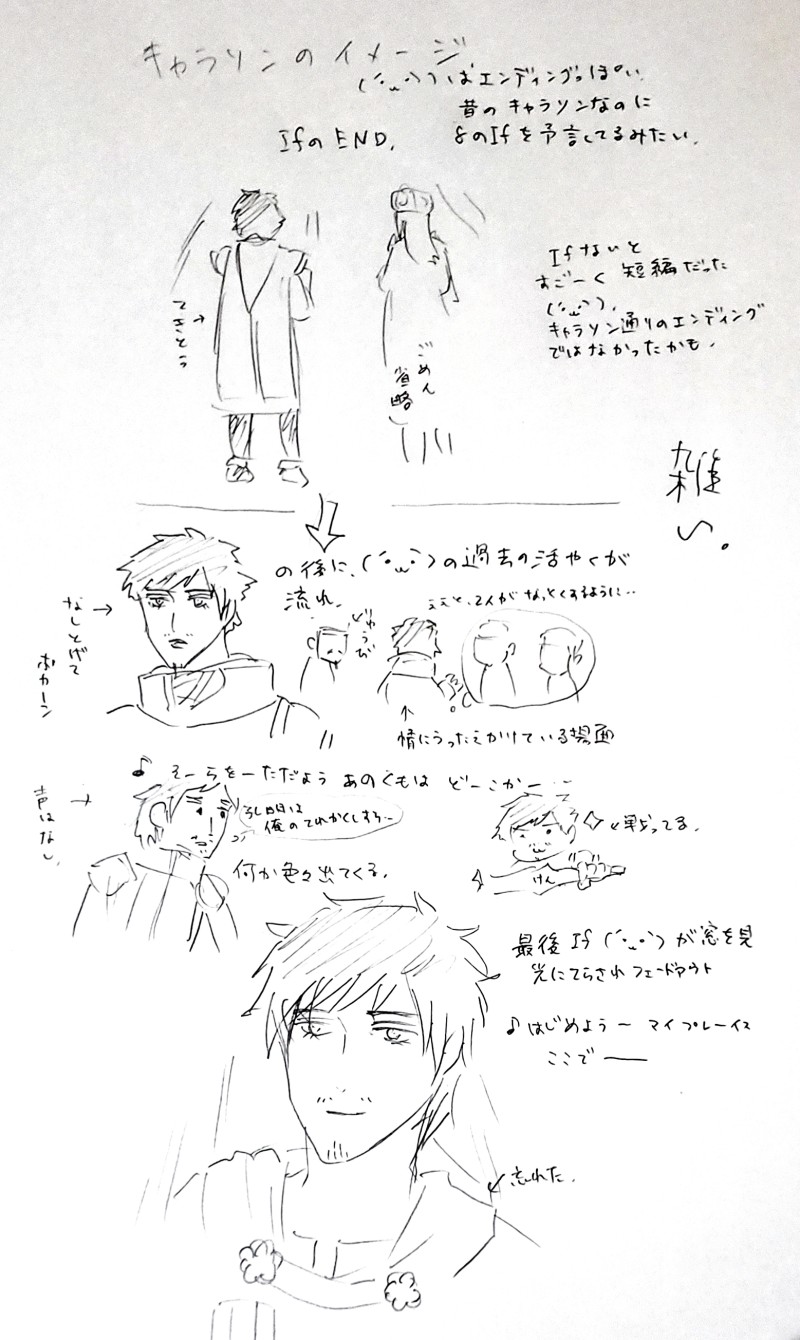 キャラソンのイメージ
(´・ω・`)ばエンディングっぽい。
昔のキャラソンなのに
IfのEND。
8のIfを予言してるみたい。
Ifないと
すごーく短編だった
(´・ω・`)。
キャラソン通りのエンディング
ではなかったかも。
てきとう
ごめん
省略
雑
い。
の後に、(´・ω・`)の過去の活やくが
流れ、
なしとげて
ポカーン
ええと、2人がなっとくするように‥
情にうったえかけている場面
♪そーらをーただよう あのくもは どーこかー
声はなし。
俺のてれかくしすら~
何か色々出てくる。
戦ってる。
けん
最後 If (´・ω・`) が窓を見
光にてらされフェードアウト
♪はじめよう〜 マイプレイス
ここでー
忘れた。